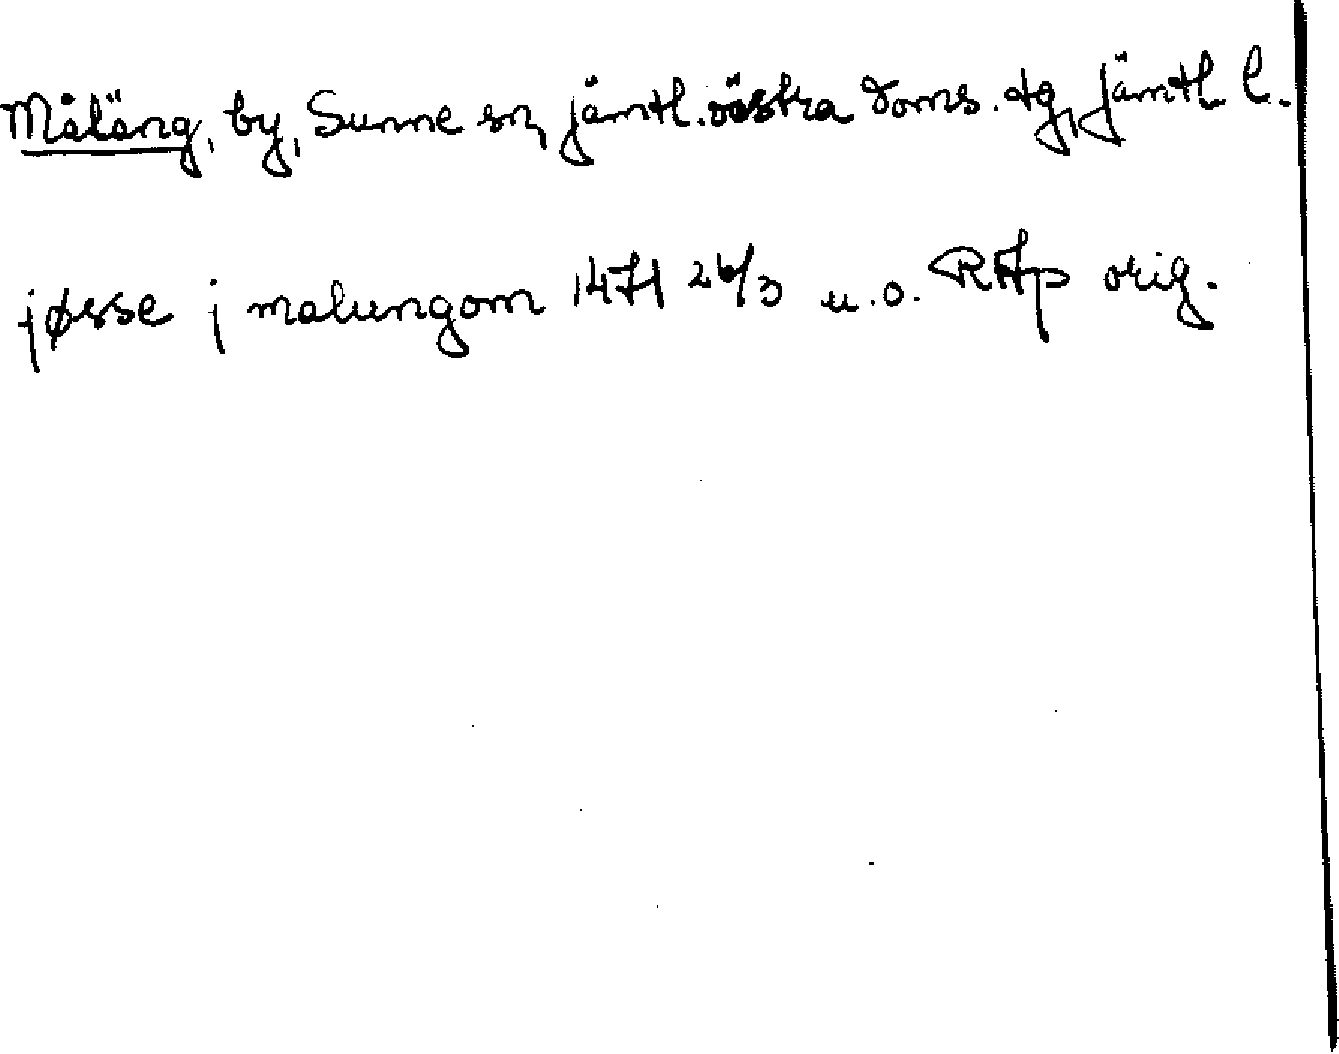 Måläng, by, Sunne sn, Jämtl. västra doms. tg, Jämtl. l.
jøsse j malungom 1471 26/3 u.o. RAp orig.